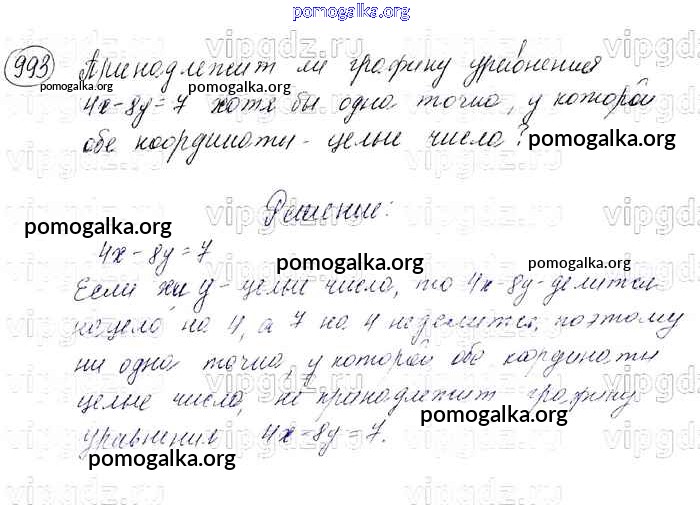 pomogalka.org
993 Принадлежит ли графику уравнения
4x-8y=7 хотя бы одна точка, у которой
обе координаты - целые числа?
Решение:
4x-8y=7
Если x и y - целые числа, то 4x-8y - делится
нацело на 4, а 7 на 4 не делится, поэтому
ни одна точка, у которой обе координаты
целые числа, не принадлежит графику
уравнения 4x-8y=7.
pomogalka.org
pomogalka.org
pomogalka.org
pomogalka.org
pomogalka.org
pomogalka.org
pomogalka.org
pomogalka.org
pomogalka.org
vipgdz.ru